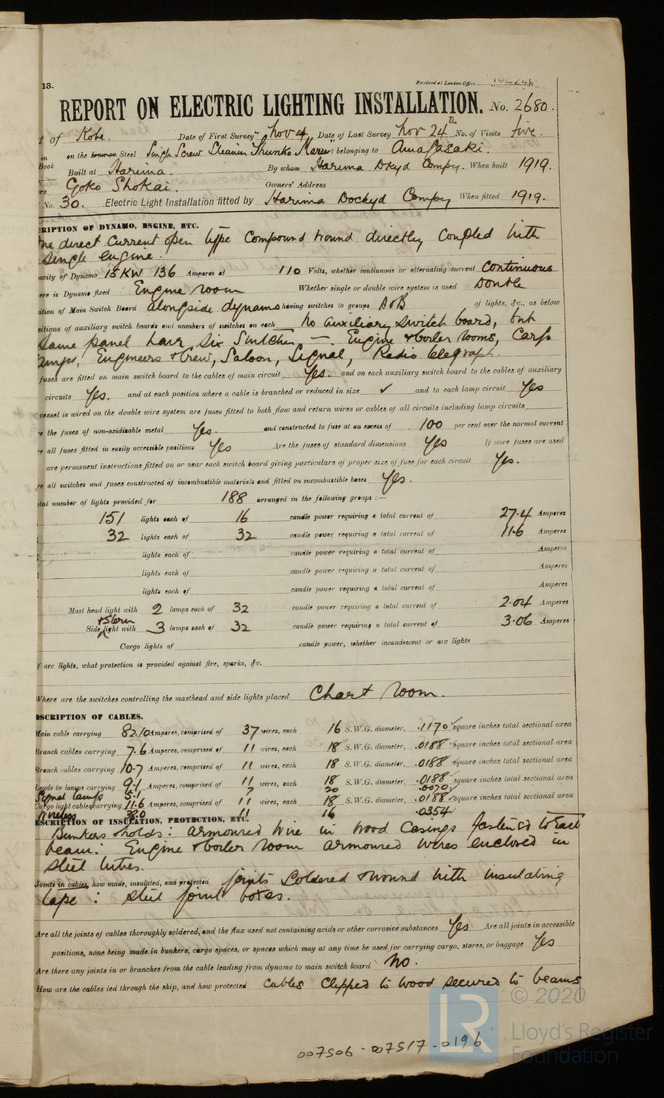 13.
Received at London Office
REPORT ON ELECTRIC LIGHTING INSTALLATION. No. 2680.
t of Kobe. Date of First Survey Nov 4 Date of Last Survey Nov 24th No. of Visits five.
on the Iron or Steel Single Screw Steamer Shunko Maru belonging to Amagasaki.
Book Built at Harima. By whom Harima Dkyd Compy. When built 1919.
Goko Shokai. Owners' Address
No. 30. Electric Light Installation fitted by Harima Dockyd Compy When fitted 1919.
SCRIPTION OF DYNAMO, ENGINE, ETC.
One direct Current open type Compound wound directly Coupled with
single engine.
acity of Dynamo 15 KW 136 Amperes at 110 Volts, whether continuous or alternating current Continuous
ere is Dynamo fixed Engine room Whether single or double wire system is used Double
sition of Main Switch Board alongside dynamo having switches to groups A to B of lights, &c., as below
sitions of auxiliary switch boards and numbers of switches on each No auxiliary switch board, but
same panel have six switches — Engine & boiler rooms, Cargo
lamps, Engineers & Crew, Saloon, Signal, Radio telegraph.
fuses are fitted on main switch board to the cables of main circuit Yes. and on each auxiliary switch board to the cables of auxiliary
circuits Yes. and at each position where a cable is branched or reduced in size ✓ and to each lamp circuit Yes
vessel is wired on the double wire system are fuses fitted to both flow and return wires or cables of all circuits including lamp circuits
e the fuses of non-oxidizable metal Yes. and constructed to fuse at an excess of 100 per cent over the normal current
e all fuses fitted in easily accessible positions Yes Are the fuses of standard dimensions Yes If wire fuses are used
are permanent instructions fitted on or near each switch board giving particulars of proper size of fuse for each circuit Yes.
re all switches and fuses constructed of incombustible materials and fitted on incombustible bases Yes.
otal number of lights provided for 188 arranged in the following groups :—
151 lights each of 16 candle power requiring a total current of 27.4 Amperes
32 lights each of 32 candle power requiring a total current of 11.6 Amperes
lights each of candle power requiring a total current of Amperes
lights each of candle power requiring a total current of Amperes
lights each of candle power requiring a total current of Amperes
Mast head light with 2 lamps each of 32 candle power requiring a total current of 2.04 Amperes
+ Stern
Side light with 3 lamps each of 32 candle power requiring a total current of 3.06 Amperes
Cargo lights of candle power, whether incandescent or arc lights
f arc lights, what protection is provided against fire, sparks, &c.
Where are the switches controlling the masthead and side lights placed Chart room.
ESCRIPTION OF CABLES.
Main cable carrying 82.10 Amperes, comprised of 37 wires, each 16 S.W.G. diameter, .1170 square inches total sectional area
Branch cables carrying 7.6 Amperes, comprised of 11 wires, each 18 S.W.G. diameter, .0188 square inches total sectional area
Branch cables carrying 10.7 Amperes, comprised of 11 wires, each 18 S.W.G. diameter, .0188 square inches total sectional area
Leads to lamps carrying 9.1 Amperes, comprised of 11 wires, each 18 S.W.G. diameter, .0188 square inches total sectional area
Signal lamps 5.1 7 20 .0070
Cargo light cables carrying 11.6 Amperes, comprised of 11 wires, each 18 S.W.G. diameter, .0188 square inches total sectional area
Wireless 16 .0354
ESCRIPTION OF INSULATION, PROTECTION, ETC.
Bunkers & holds: armoured wire in wood Casings fastened to each
beam: Engine & boiler room armoured wires enclosed in
steel tubes.
Joints in cables, how made, insulated, and protected joints soldered & wound with insulating
tape: steel joint boxes.
Are all the joints of cables thoroughly soldered, and the flux used not containing acids or other corrosive substances Yes Are all joints in accessible
positions, none being made in bunkers, cargo spaces, or spaces which may at any time be used for carrying cargo, stores, or baggage Yes
Are there any joints in or branches from the cable leading from dynamo to main switch board No.
How are the cables led through the ship, and how protected Cables Clipped to wood secured to beams
LR © 2020
Lloyd's Register
Foundation
007506 - 007517 - 0196